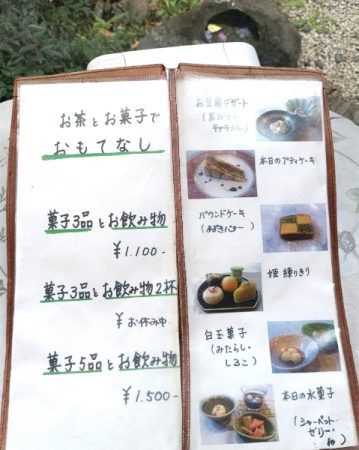 お茶とお菓子で
おもてなし
菓子3品とお飲み物
¥1.100-
菓子3品とお飲み物2杯
¥ お休み中
菓子5品とお飲み物
¥1.500-
お豆腐デザート
(黒みつ・
キャラメル)
本日のプティケーキ
パウンドケーキ
(あずきバター)
姫 練りきり
白玉菓子
(みたらし・
しるこ)
本日の水菓子
(シャーベット・
ゼリー・